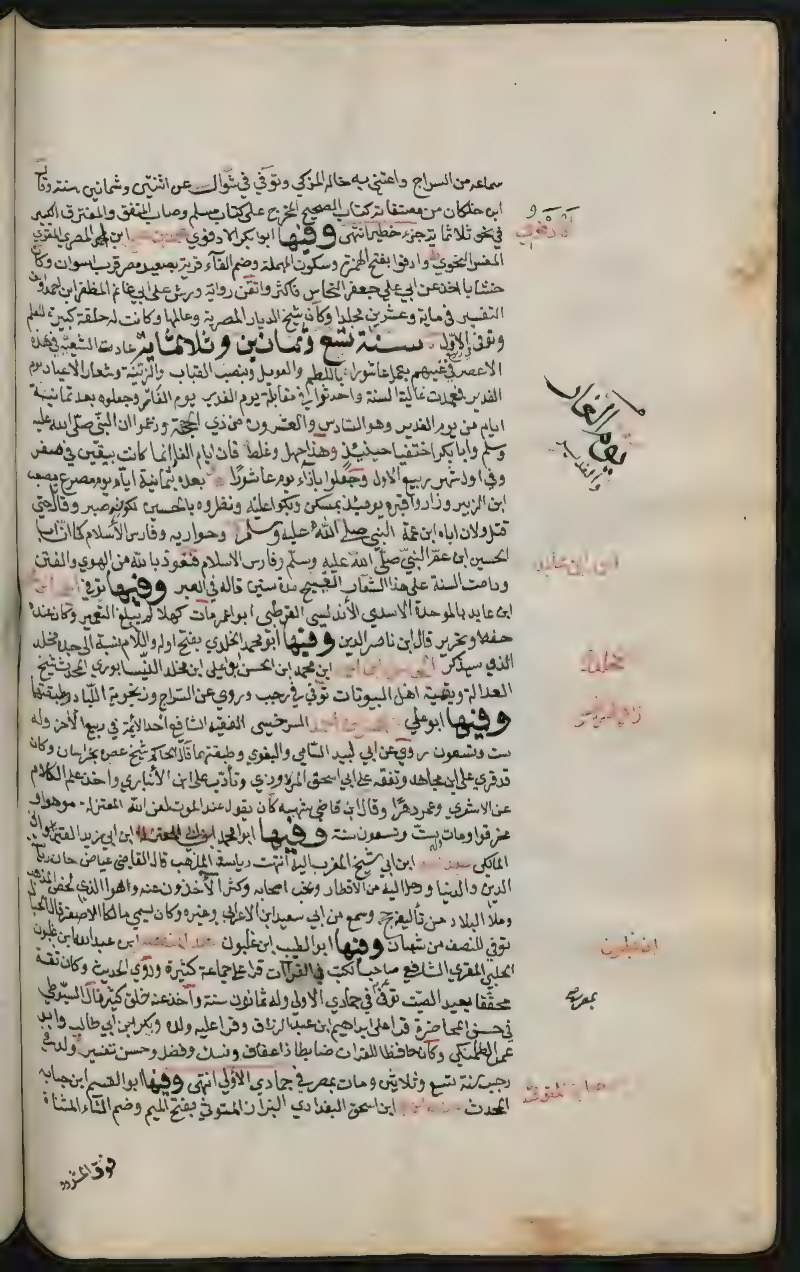 سماعه من السراج واعتني به خاله المزكي وتوفي في شوال عن اثنتين وثمانين سنة وقال
ابن خلكان من مصنفاته كتاب الصحيح المخرج على كتاب مسلم وصاب المتفق والمفترق الكبير
في نحو ثلاثماية جزء خطير انتهى وفيها ابو بكر الادفوي محمد بن علي ابن احمد المصري المقري
المفسر النحوي وادفوا بفتح الهمزة وسكون المهملة وضم الفاء قرية بصعيد مصر قرب اسوان وكان
خشابا اخذ عن ابي علي جعفر النحاس فاكثر واتقن رواية ورش على ابي غانم المظفر ابن احمد والف
التفسير في ماية وعشرين مجلدا وكان شيخ الديار المصرية وعالمها وكانت له حلقة كبيرة للعلم
وتوفي الاول سنة تسع وثمانين وثلاثماية عادت الشيعة في هذه
الاعصر في غيهم بعمل عاشورا باللطم والعويل وبنصب القباب والزينة وشعار الاعياد يوم
الغدير فعمدت غالية السنة واحدثوا في مقابلة يوم الغدير يوم الغار وجعلوه بعد ثمانية
ايام من يوم الغدير وهو السادس والعشرون من ذي الحجة وزعموا ان النبي صلى الله عليه
وسلم وابا بكر اختفيا حينئذ وهذا جهل وغلط فان ايام الغار انما كانت بيقين في صفر
وفي اول شهر ربيع الاول وجعلوا بازاء يوم عاشورا بعده بثمانية ايام يوم مصرع مصعب
ابن الزبير وزاروا قبره يومئذ بمسكن وبكوا عليه ونظروه بالحسين لكونه صبر وقاتل حتى
قتل ولان اباه ابن عمة النبي صلى الله عليه وسلم وحواريه وفارس الاسلام كما ان ابا
الحسين ابن عم النبي صلى الله عليه وسلم وفارس الاسلام فنعوذ بالله من الهوي والفتن
ودامت السنة على هذا الشعار القبيح مدة سنين قاله في العبر وفيها توفي
ابن عابد بالموحدة الاسدي الأندلسي القرطبي ابو عمر مات كهلا لم يبلغ التعمير وكان عنده
حفظ وتحرير قال ابن ناصر الدين وفيها ابو محمد المخلدي بفتح اوله واللام نسبة الى جده مخلد
الذي سيذكر الحسن ابن احمد ابن محمد ابن الحسن ابن علي ابن مخلد النيسابوري المحدث شيخ
العدالة وبقية اهل البيوتات توفي في رجب وروي عن السراج وزنجوية اللباد وطبقتهما
وفيها ابو علي زاهر بن احمد السرخسي الفقيه الشافعي احد الأيمة في ربيع الآخر وله
ست وتسعون روي عن ابي لبيد السامي والبغوي وطبقتهما قال الحاكم شيخ عصره بخراسان وكان
قد قري على ابن مجاهد وتفقه على ابي اسحق المروزي وتأدب على ابن الأنباري واخذ علم الكلام
عن الاشعري وعمر دهرا وقال ابن قاضي شهبه كان يقول عند الموت لعن الله المعتزلة موهوا
مخرقوا ومات وله ست وتسعون سنة وفيها ابو محمد ابن ابي زيد القيرواني
المالكي ابن ابي شيخ المغرب اليه انتهت رياسة المذهب قال القاضي عياض حاز رياسة
الدين والدنيا ورحل اليه من الاقطار ونجب اصحابه وكثر الآخذون عنه وهو الذي لخص المذهب
وملأ البلاد من تآليفه حج وسمع من ابي سعيد ابن الاعرابي وغيره وكان يسمي مالكا الاصغر قال الحبال
توفي للنصف من شعبان وفيها ابو الطيب ابن غلبون عبد المنعم ابن عبد الله ابن غلبون
الحلبي المقري الشافعي صاحب الكتب في القراآت قرا على جماعة كثيرة وروي الحديث وكان ثقة
محققا بعيد الصيت توفي في جمادي الاولي وله ثمانون سنة واخذ عنه خلق كثير قال السيوطي
في حسن المحاضرة قرا على ابراهيم ابن عبد الرزاق وقرا عليه ولده وبكر ابن ابي طالب وابو
عمر الطلمنكي وكان حافظا للقران ضابطا ذا عفاف ونسك وفضل وحسن تصنيف ولد في
رجب سنة تسع وثلاثين ومات بمصر في جمادي الأولى انتهى وفيها ابو القسم ابن حبابه
المحدث ابن اسحق البغدادي البزاز المتوثي بفتح الميم وضم التاء المثناة
فوق المشدد
يوم الغار
والغدير
ابن ابي عابد
مخلد
زاهر السرخسي
ابن غلبون
بمصر